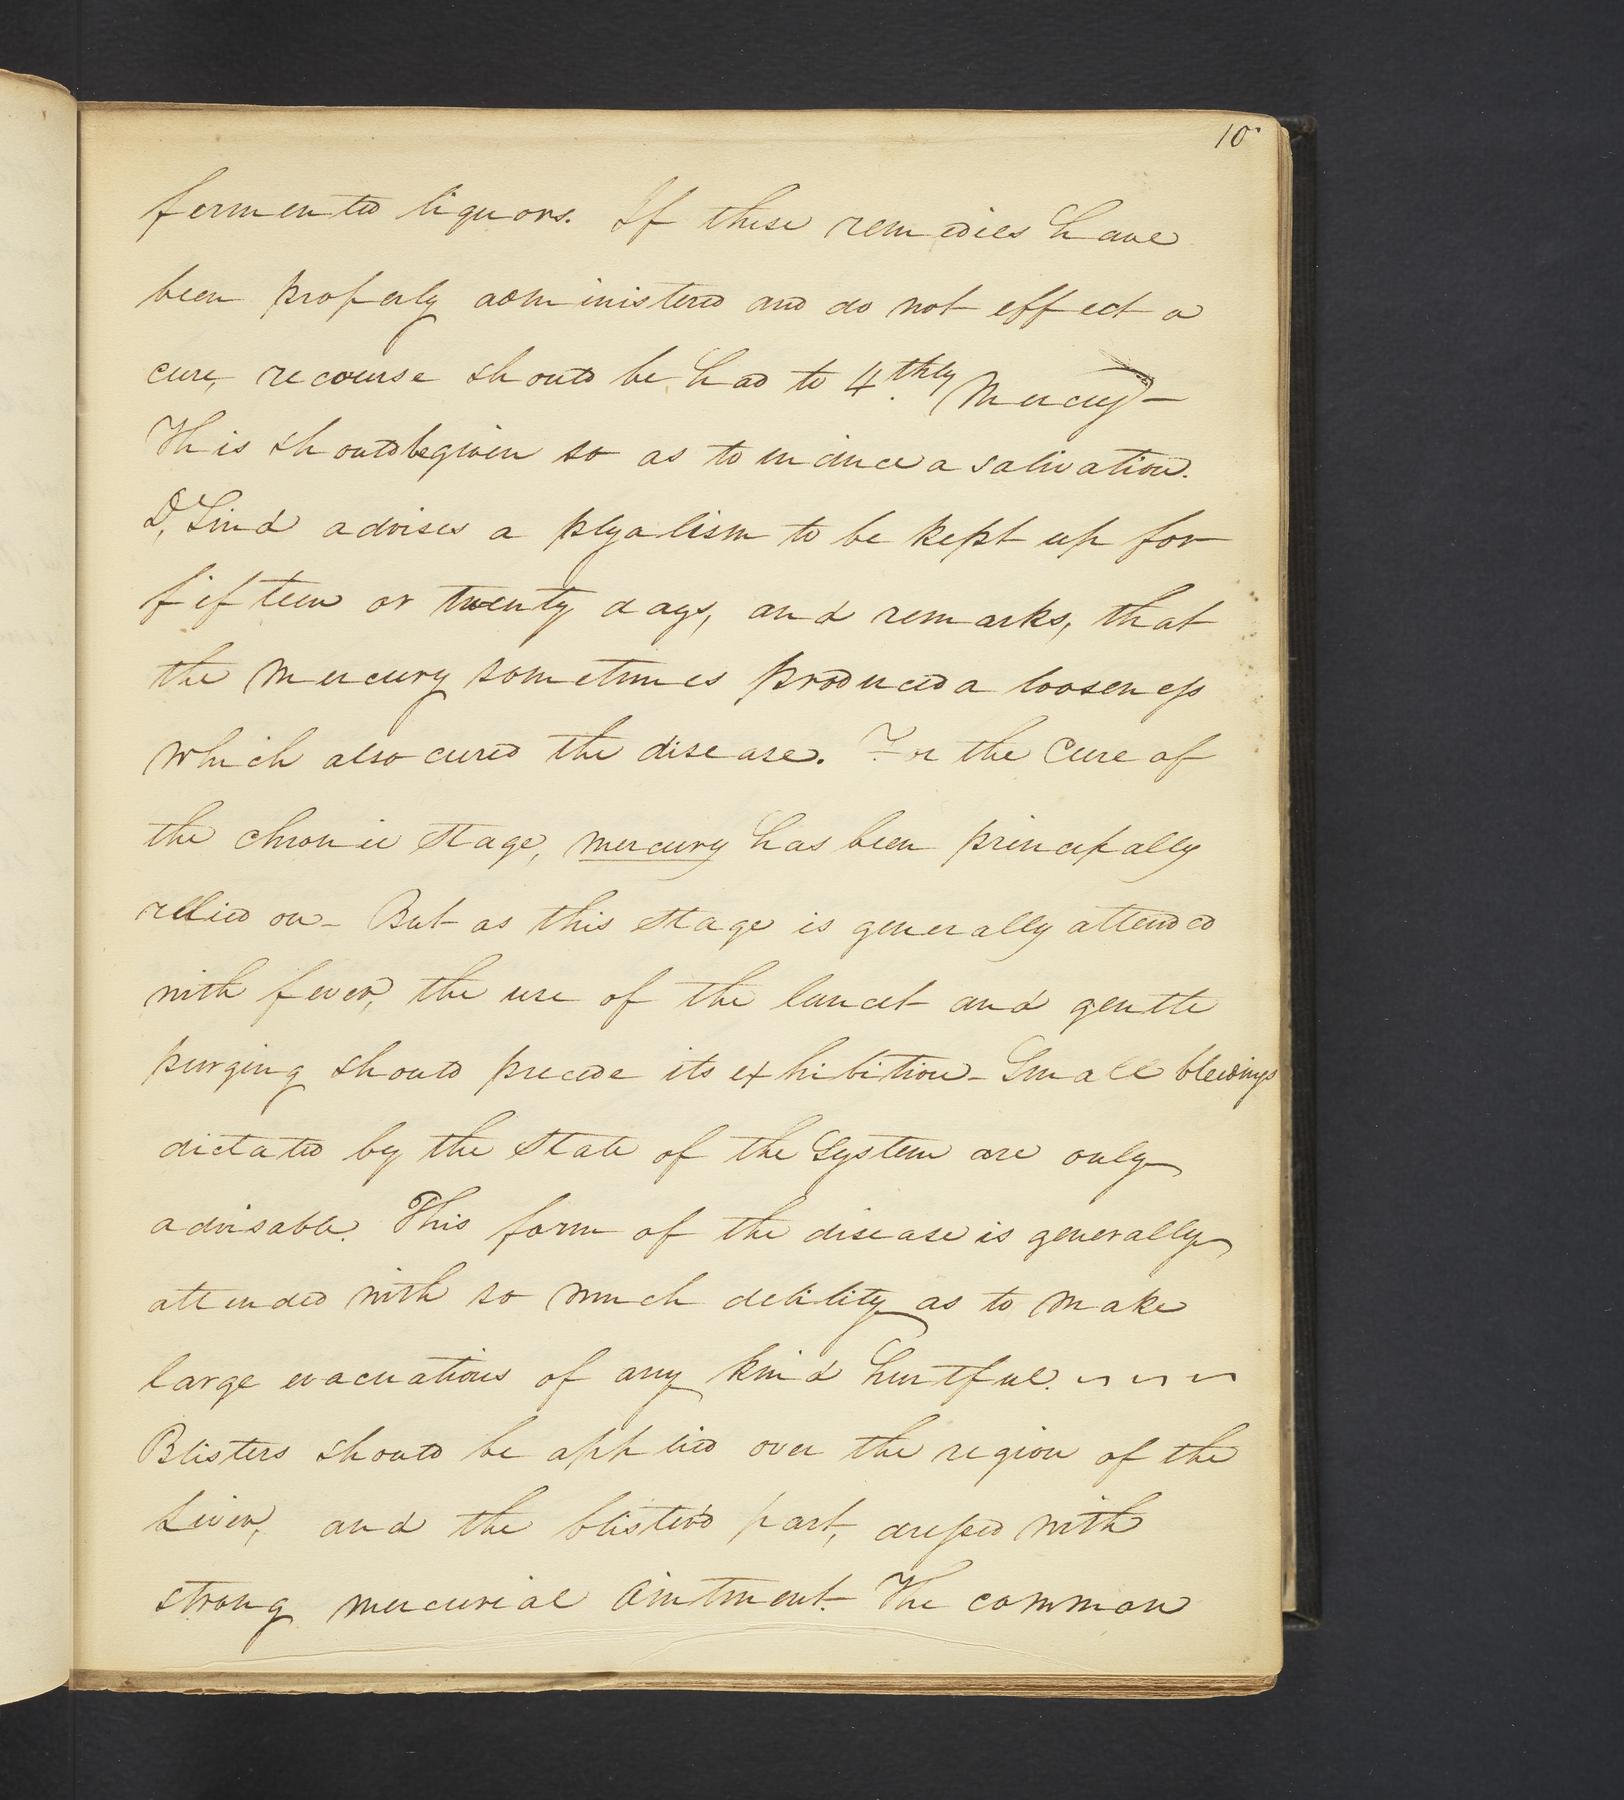 10
fermented liquors. If these remedies have
been properly administered and do not effect a
cure, recourse should be had to 4.thly Mercury—
This should be given so as to induce a salivation.
Dr. Lind advises a ptyalism to be kept up for
fifteen or twenty days, and remarks, that
the mercury sometimes produced a looseness
which also cured the disease. For the Cure of
the chronic stage, mercury has been principally
relied on— But as this stage is generally attended
with fever, the use of the lancet and gentle
purging should precede its exhibition— Small bleedings
dictated by the state of the System are only
advisable. This form of the disease is generally
attended with so much debility as to make
large evacuations of any kind hurtful. ~ ~ ~
Blisters should be applied over the region of the
Liver, and the blister'd part, dressed with
strong mercurial Ointment. The common